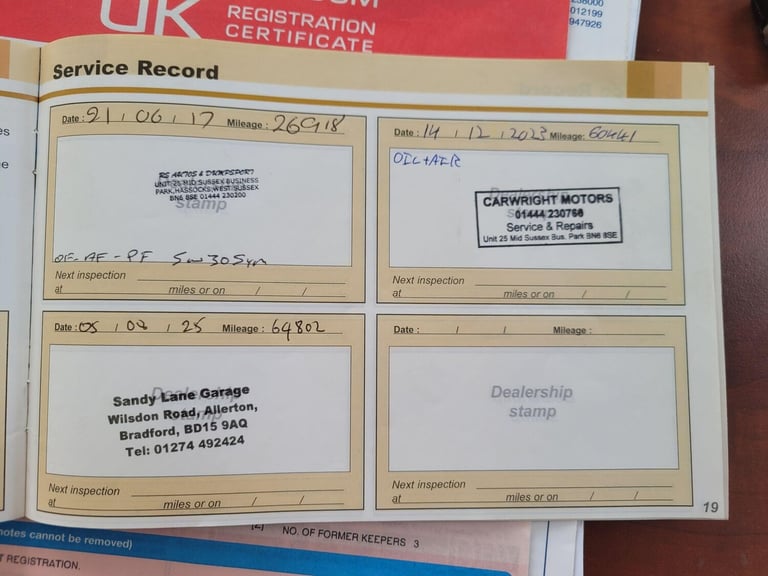 UK
REGISTRATION
CERTIFICATE
012199
947926
Service Record
Date: 21 / 06 / 17 Mileage: 26918
RS AUTOS & DUMPSPORT
UNIT 25 MID SUSSEX BUSINESS
PARK, HASSOCKS, WEST SUSSEX
BN6 8SE 01444 230200
stamp
OF-AF-PF 5w30 Syn
Next inspection
at miles or on / /
Date: 14 / 12 / 2023 Mileage: 60441
OIL + AIR
CARWRIGHT MOTORS
01444 230766
Service & Repairs
Unit 25 Mid Sussex Bus. Park BN6 8SE
Next inspection
at miles or on / /
Date: 05 / 08 / 25 Mileage: 64802
Dealership
stamp
Sandy Lane Garage
Wilsdon Road, Allerton,
Bradford, BD15 9AQ
Tel: 01274 492424
Next inspection
at miles or on / /
Date: / / Mileage:
Dealership
stamp
Next inspection
at miles or on / /
19
notes cannot be removed)
NO. OF FORMER KEEPERS 3
REGISTRATION.